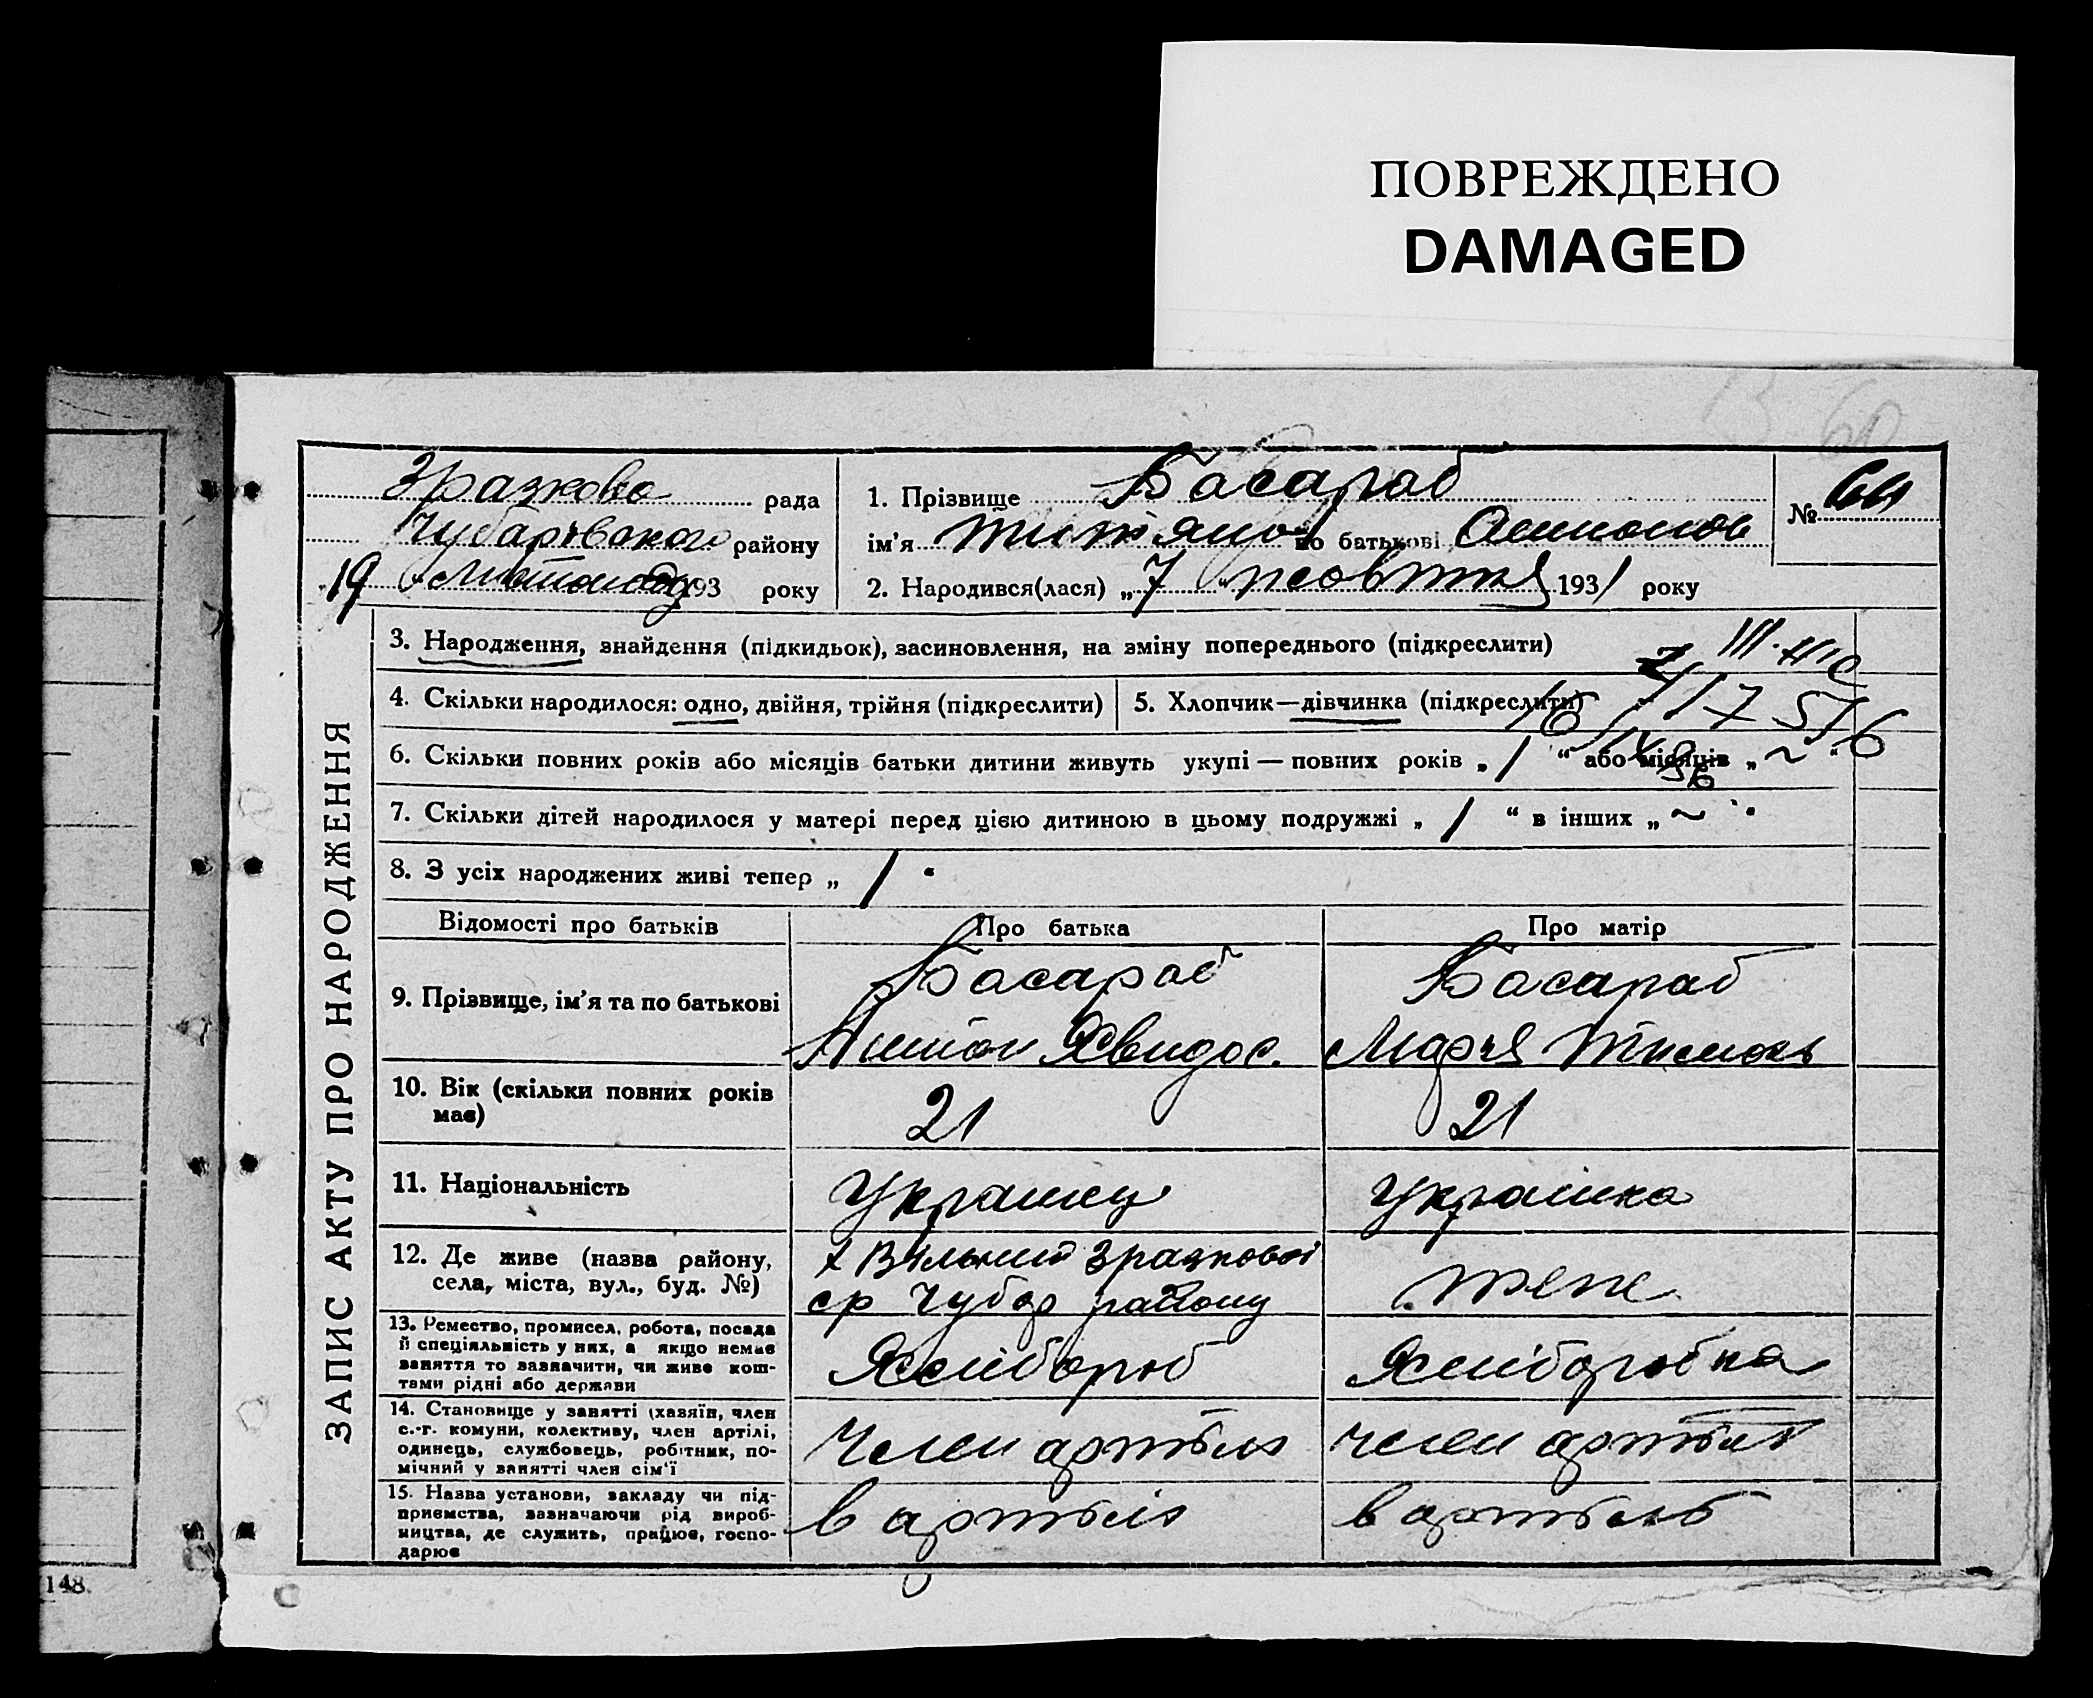 ПОВРЕЖДЕНО
DAMAGED
Зразкова рада
Чубарівського району
19 листопад 193 року
1. Прізвище Басараб
ім'я по батькові
№ 64
2. Народився(лася) „7 жовтня 1931 року
ЗАПИС АКТУ ПРО НАРОДЖЕННЯ
3. Народження, знайдення (підкидьок), засиновлення, на зміну попереднього (підкреслити)
4. Скільки народилося: одно, двійня, трійня (підкреслити)
5. Хлопчик—дівчинка (підкреслити)
6. Скільки повних років або місяців батьки дитини живуть укупі — повних років „ 1 “ або місяців „ ~ “
7. Скільки дітей народилося у матері перед цією дитиною в цьому подружжі „ 1 “ в інших „ ~ “
8. З усіх народжених живі тепер „ 1 “
Відомості про батьків
Про батька
Про матір
9. Прізвище, ім'я та по батькові
Басараб
Антон
Басараб
Марія
10. Вік (скільки повних років має)
21
21
11. Національність
Українец
Українка
12. Де живе (назва району,
села, міста, вул., буд. №)
х Вільний Зразкової
ср Чубар району
теж
13. Ремество, промисел, робота, посада
й спеціяльність у них, а якщо немає
заняття то зазначити, чи живе кош-
тами рідні або держави
Хліборіб
Хліборобка
14. Становище у занятті (хазяїн, член
с.-г. комуни, колективу, член артілі,
одинець, службовець, робітник, по-
мічний у занятті член сім'ї
Член артіль
член артіль
15. Назва установи, закладу чи під-
приємства, зазначаючи рід вироб-
ництва, де служить, працює, госпо-
дарює
в артіль
в артіль
148.